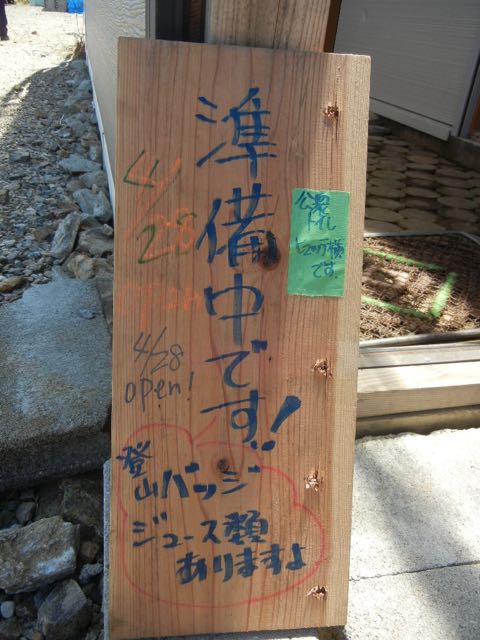 準備中です!
4/28
4/28
open!
公衆
トイレ
横
です。
登
山バッジ
ジュース類
ありますよ